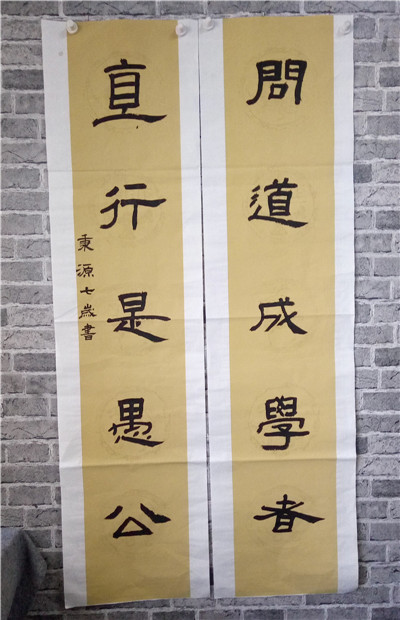 問道成學者
直行是愚公
秉源七歲書